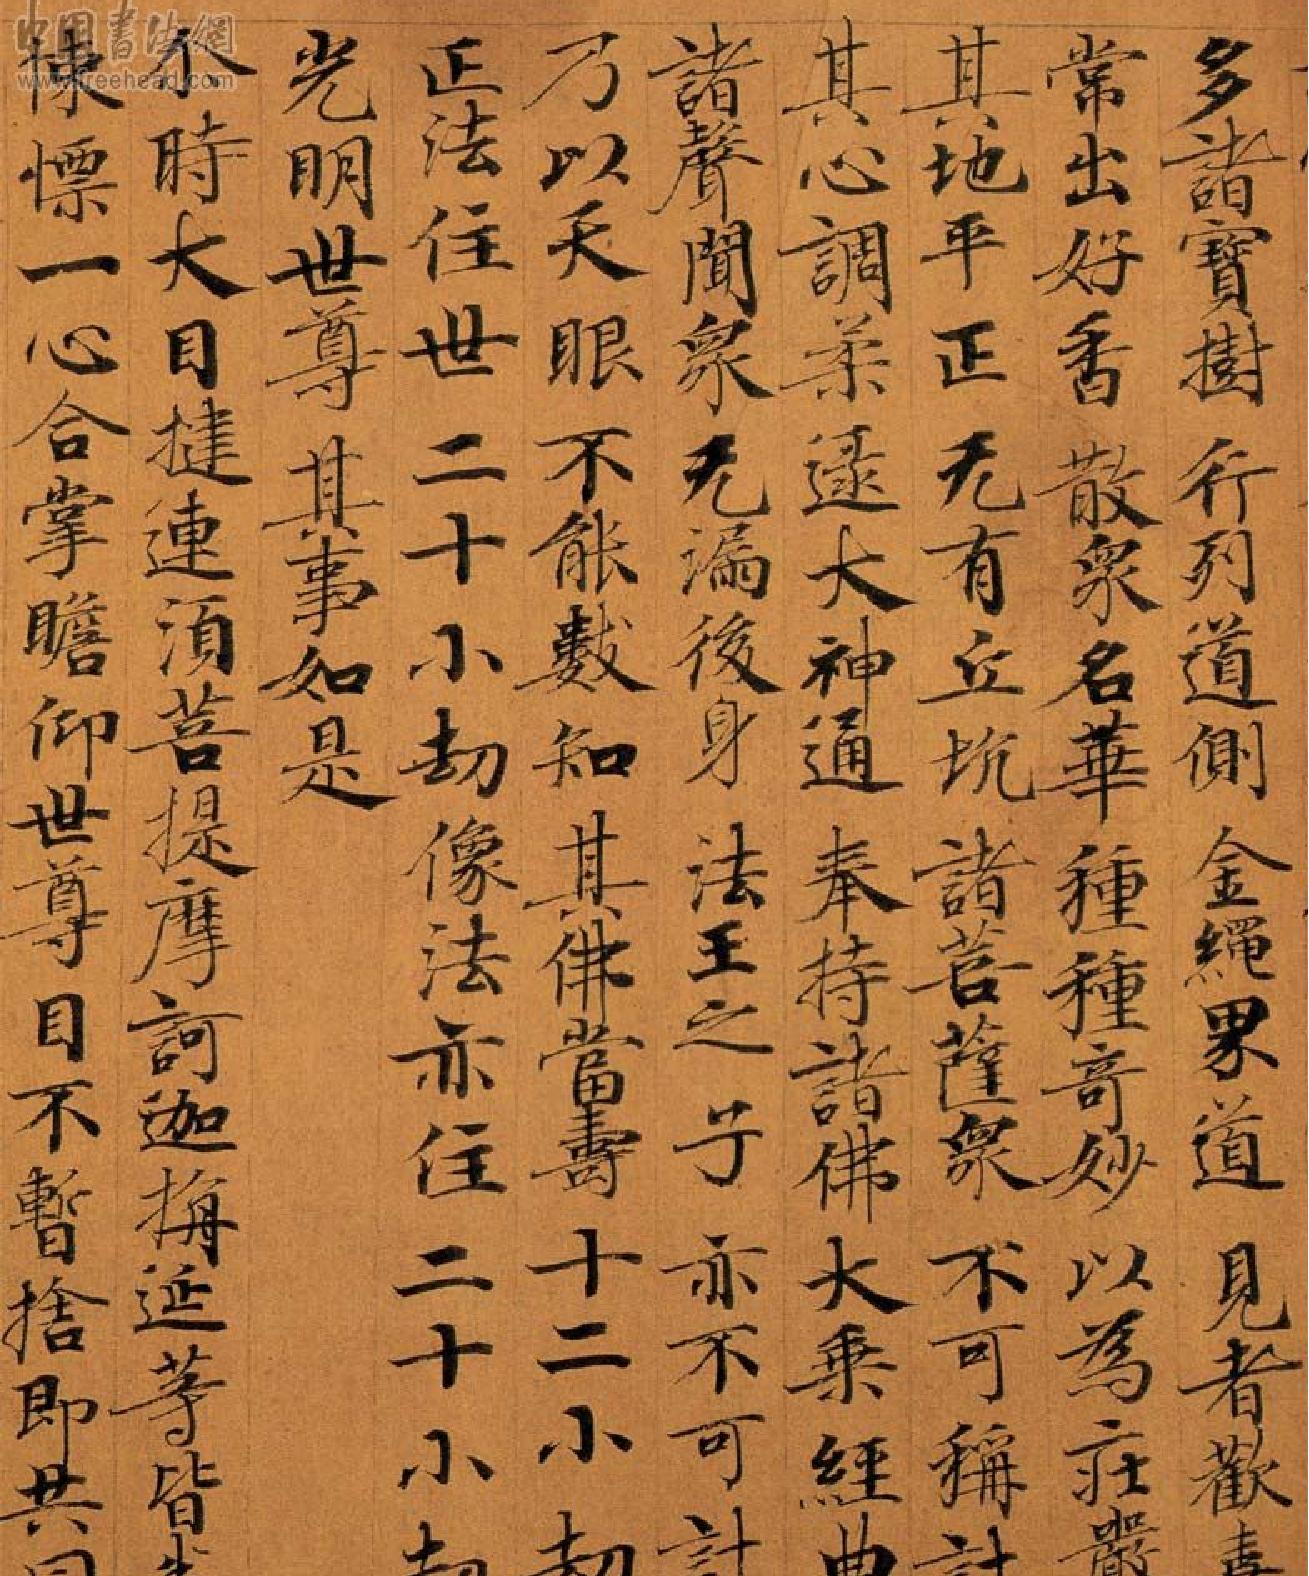 多諸寶樹 行列道側 金繩界道 見者歡喜
常出好香 散眾名華 種種奇妙 以為莊嚴
其地平正 无有丘坑 諸菩薩眾 不可稱計
其心調柔 逮大神通 奉持諸佛 大乘經典
諸聲聞眾 无漏後身 法王之子 亦不可計
乃以天眼 不能數知 其佛當壽 十二小劫
正法住世 二十小劫 像法亦住 二十小劫
光明世尊 其事如是
尒時大目揵連須菩提摩訶迦旃延等皆
悚慄一心合掌瞻仰世尊目不暫捨即共同
中国書法網
www.freehead.com